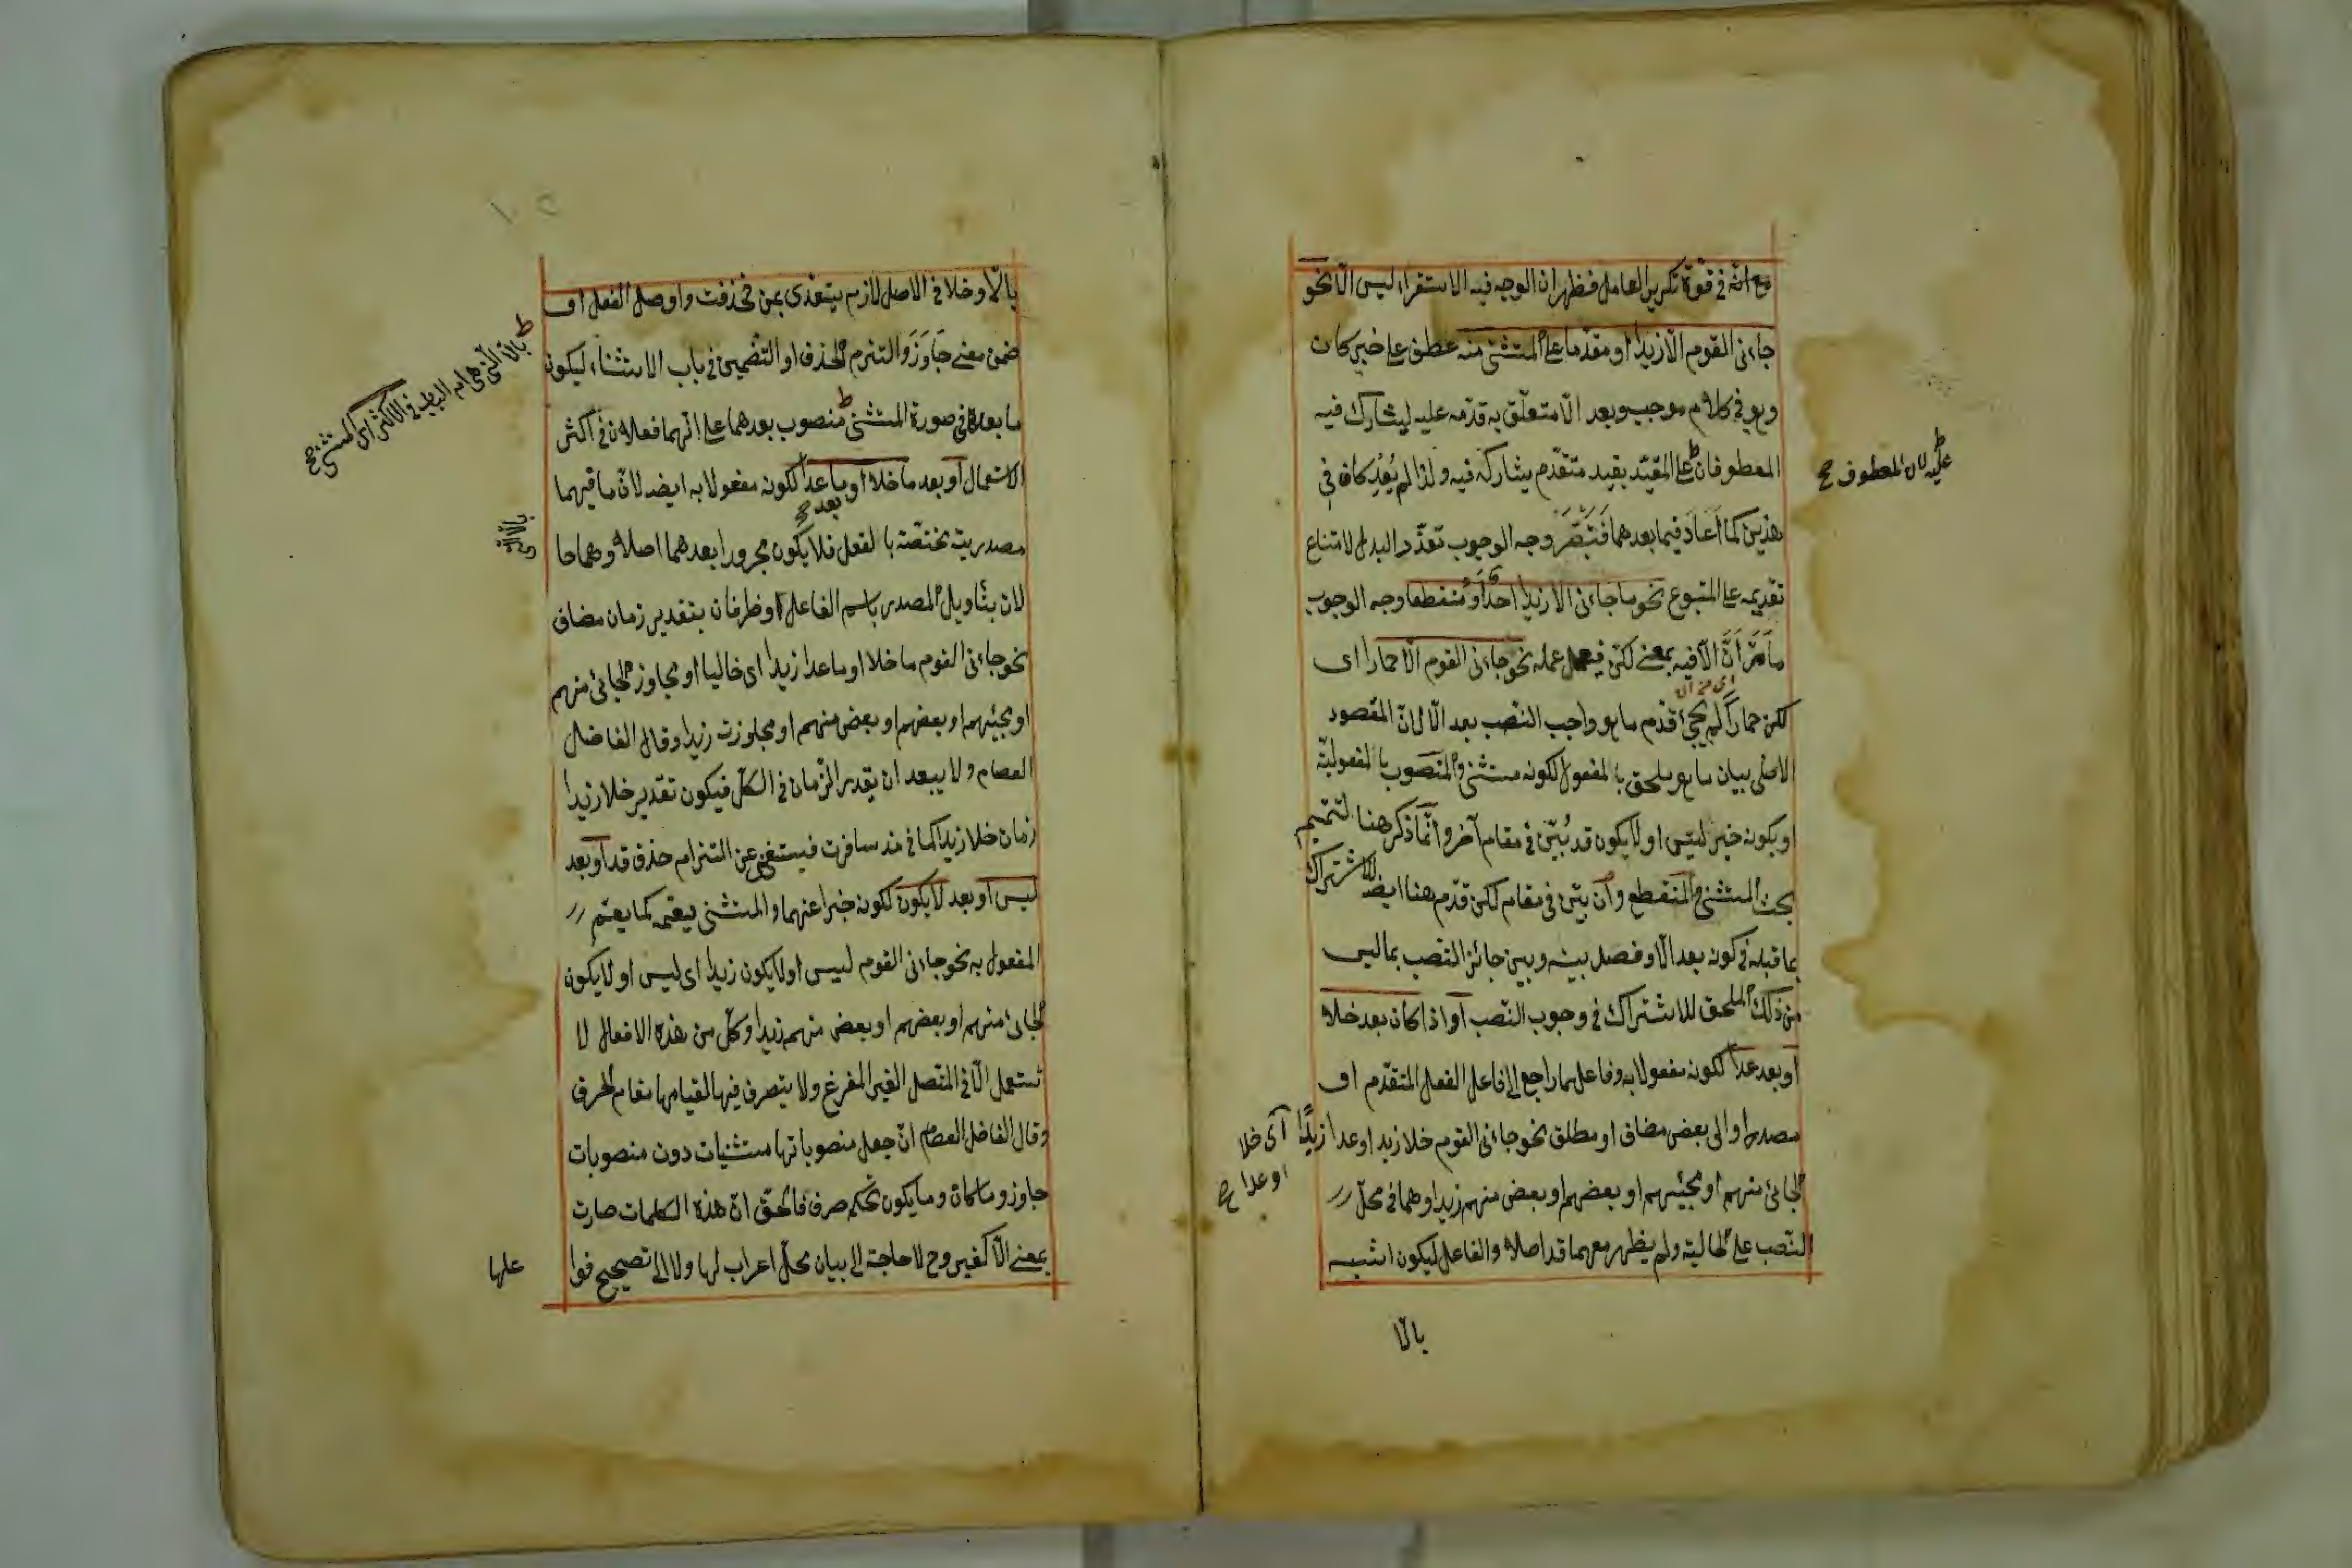 مع انّه فى قوّة تكرير العامل فظهر ان الوجه فيه الاستقراء ليس الّا نحو
جاءنى القوم الّا زيدا او مقدّما على المستثنى منه عطف على خبر كان
وهو فى كلام موجب وبعد الّا متعلّق به قدّمه عليه ليشارك فيه
المعطوفان على المقيّد بقيد متقدّم يشاركه فيه ولذا لم يُعِد كان فى
عليه لان المعطوف صح
هذين كما اَعاد فيما بعدهما فَتَبَصَّر وجه الوجوب تعذّر البدل لامتناع
تقديمه على المتبوع نحو ما جاءنى الا زيدا احدٌ او منقطعا وجه الوجوب
ما مَرّ اَنَّ الّا فيه بمعنى لكنّ فيعمل عمله نحو جاءنى القوم الّا حمارا اى
لكن حمارا لم يجئ قدّم ما هو واجب النصب بعد الّا لانّ المقصود
الاصلى بيان ما هو ملحق بالمفعول لكونه مستثنى والمنصوب بالمفعوليّة
او بكونه خبر ليس او لا يكون قد بُيّن فى مقام آخر وانّما ذكر هنا لتتميم
بحث المستثنى والمنقطع وان بيّن فى مقام لكن قدّم هنا ايضا للاشتراك
بما قبله فى كونه بعد الّا وفصل بينه وبين جائز النصب بما ليس
من ذلك الملحق للاشتراك فى وجوب النّصب او اذا كان بعد خلا
او بعد عدا لكونه مفعولا به وفاعلهما راجع الى فاعل الفعل المتقدّم او
مصدره او الى بعض مضاف او مطلق نحو جاءنى القوم خلا زيدا او عدا زيدًا اى خلا
او عدا صح
الجائى منهم او مجيئهم او بعضهم او بعض منهم زيدا وهما فى محلّ
النّصب على الحالية ولم يظهر معهما قد اصلا والفاعل ليكون اشبه
بالّا
بالّا وخلا فى الاصل لازم يتعدّى بمن فحذفت واوصل الفعل او
ضمن معنى جاوَزَ والتزم الحذف او التضمين فى باب الاستثناء ليكون
ما بعدها فى صورة المستثنى منصوب بعدهما على انّهما فعلان فى اكثر
بالّا الّتى هى ام الباب فى الاكثر اى المستثنى صح
الاستعمال او بعد ما خلا او ما عدا لكونه مفعولا به ايضا لانّ ما فيهما
بعد صح
مصدرية مختصّة بالفعل فلا يكون مجرورا بعدهما اصلا وهما حا
لان بتأويل المصدر باسم الفاعل او ظرفان بتقدير زمان مضاف
نحو جاءنى القوم ما خلا او ما عدا زيدا اى خاليا او مجاوز الجائى منهم
او مجيئهم او بعضهم او بعض منهم او مجاوزت زيدا وقال الفاضل
العصام ولا يبعد ان يقدر الزّمان فى الكلّ فيكون تقدير خلا زيدا
زمان خلا زيدا كما فى مذ سافرت فيستغنى عن التزام حذف قد او بعد
ليس او بعد لا يكون لكونه خبرا عنهما والمستثنى يعمّه كما يعمّ
المفعول به نحو جاءنى القوم ليس او لا يكون زيدا اى ليس او لا يكون
الجائى منهم او بعضهم او بعض منهم زيدا وكلّ من هذه الافعال لا
تستعمل الّا فى المتصل الغير المفرغ ولا يتصرف فيها لقيامها مقام الحرف
وقال الفاضل العصام انّ جعل منصوباتها مستثنيات دون منصوبات
جاوز وما كان وما يكون تحكم صرف فالحقّ انّ هذه الكلمات صارت
بمعنى الّا كغير وح لا حاجة الى بيان محلّ اعراب لها ولا الى تصحيح فوا
علها